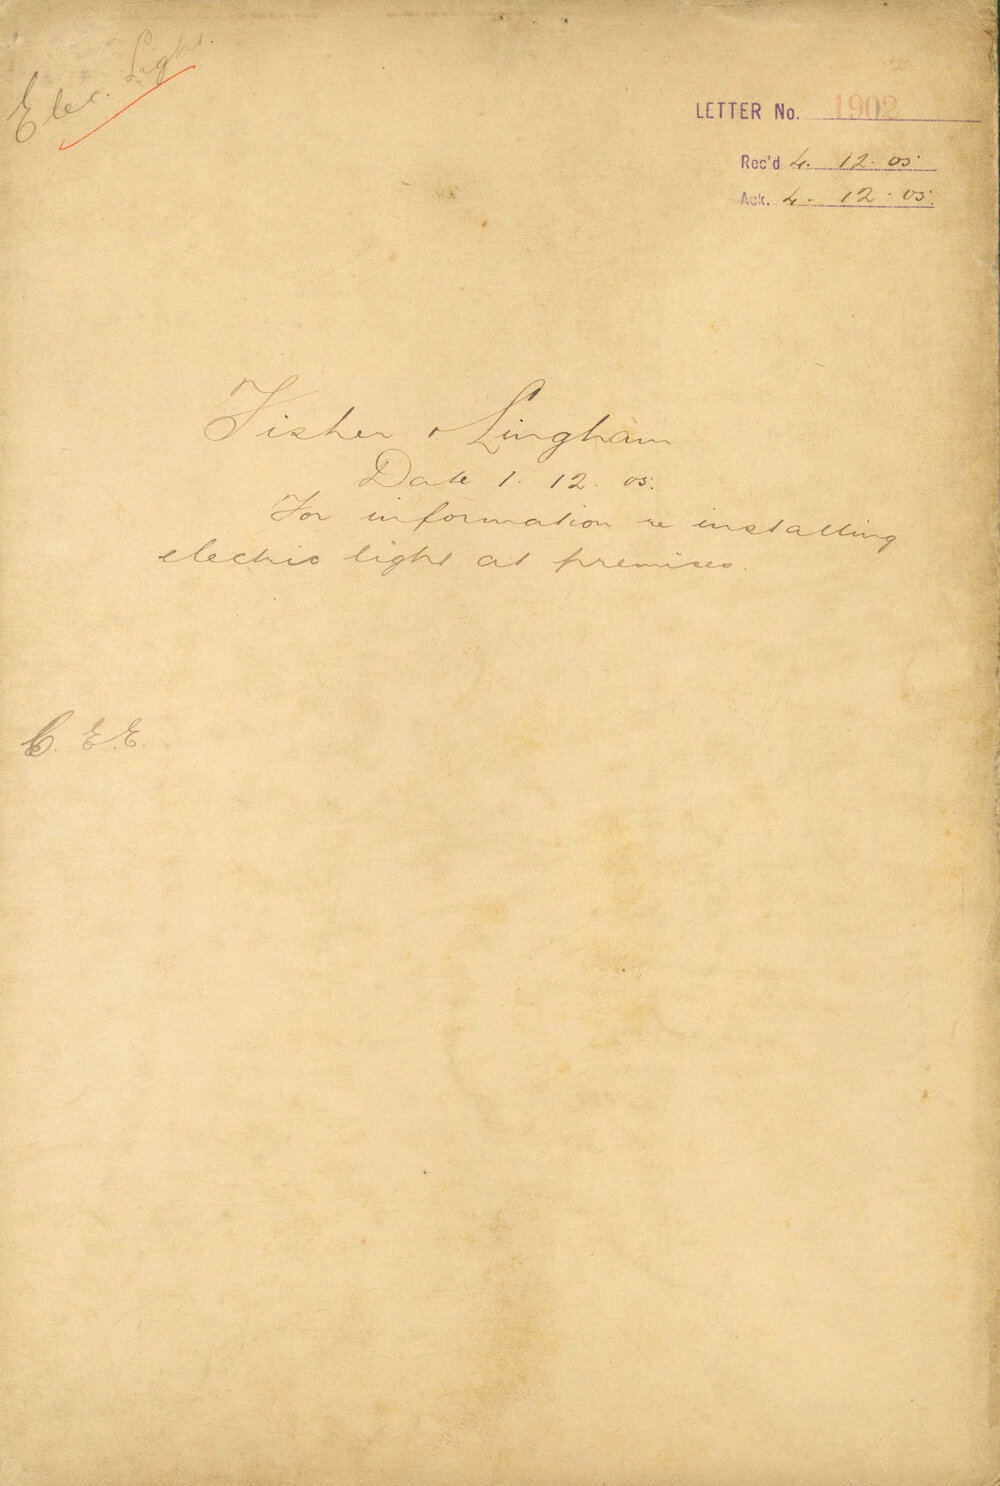 Elec. Light.
LETTER No. 1902
Rec'd 4. 12. 05.
Ack. 4. 12. 05.
Fisher & Lingham
Date 1. 12. 05.
For information re installing
electric light at premises.
C. E. E.